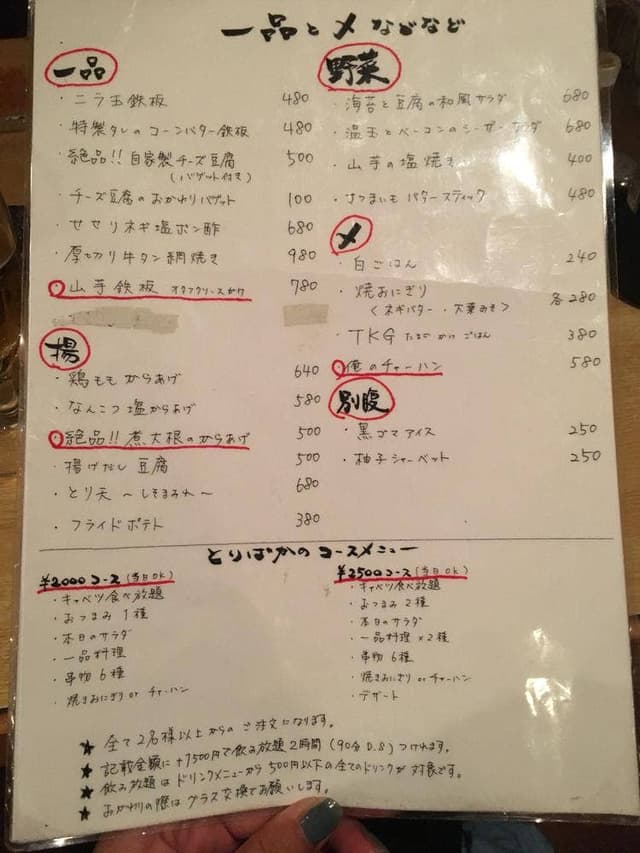 一品と〆などなど
一品
・ニラ玉鉄板 480
・特製タレのコーンバター鉄板 480
・絶品!! 自家製チーズ豆腐 500
(バゲット付き)
・チーズ豆腐のおかわりバゲット 100
・せせりネギ塩ポン酢 680
・厚切り牛タン網焼き 980
山芋鉄板 オタフクソースかけ 780
揚
・鶏ももからあげ 640
・なんこつ塩からあげ 580
絶品!! 煮大根のからあげ 500
・揚げだし豆腐 500
・とり天 〜しそまみれ〜 680
・フライドポテト 380
野菜
・海苔と豆腐の和風サラダ 680
・温玉とベーコンのシーザーサラダ 680
・山芋の塩焼き 400
・さつまいもバタースティック 480
〆
・白ごはん 240
・焼おにぎり 各280
<ネギバター・大葉みそ>
・TKG たまごかけごはん 380
俺のチャーハン 580
別腹
・黒ゴマアイス 250
・柚子シャーベット 250
とりばかのコースメニュー
¥2000コース(当日OK)
・キャベツ食べ放題
・おつまみ1種
・本日のサラダ
・一品料理
・串物6種
・焼きおにぎり or チャーハン
¥2500コース(当日OK)
・キャベツ食べ放題
・おつまみ2種
・本日のサラダ
・一品料理×2種
・串物6種
・焼きおにぎり or チャーハン
・デザート
★全て2名様以上からのご注文になります。
★記載金額に+1500円で飲み放題2時間(90分0.S)つけれます。
★飲み放題はドリンクメニューから500円以下の全てのドリンクが対象です。
★おかわりの際はグラス交換でお願いします。